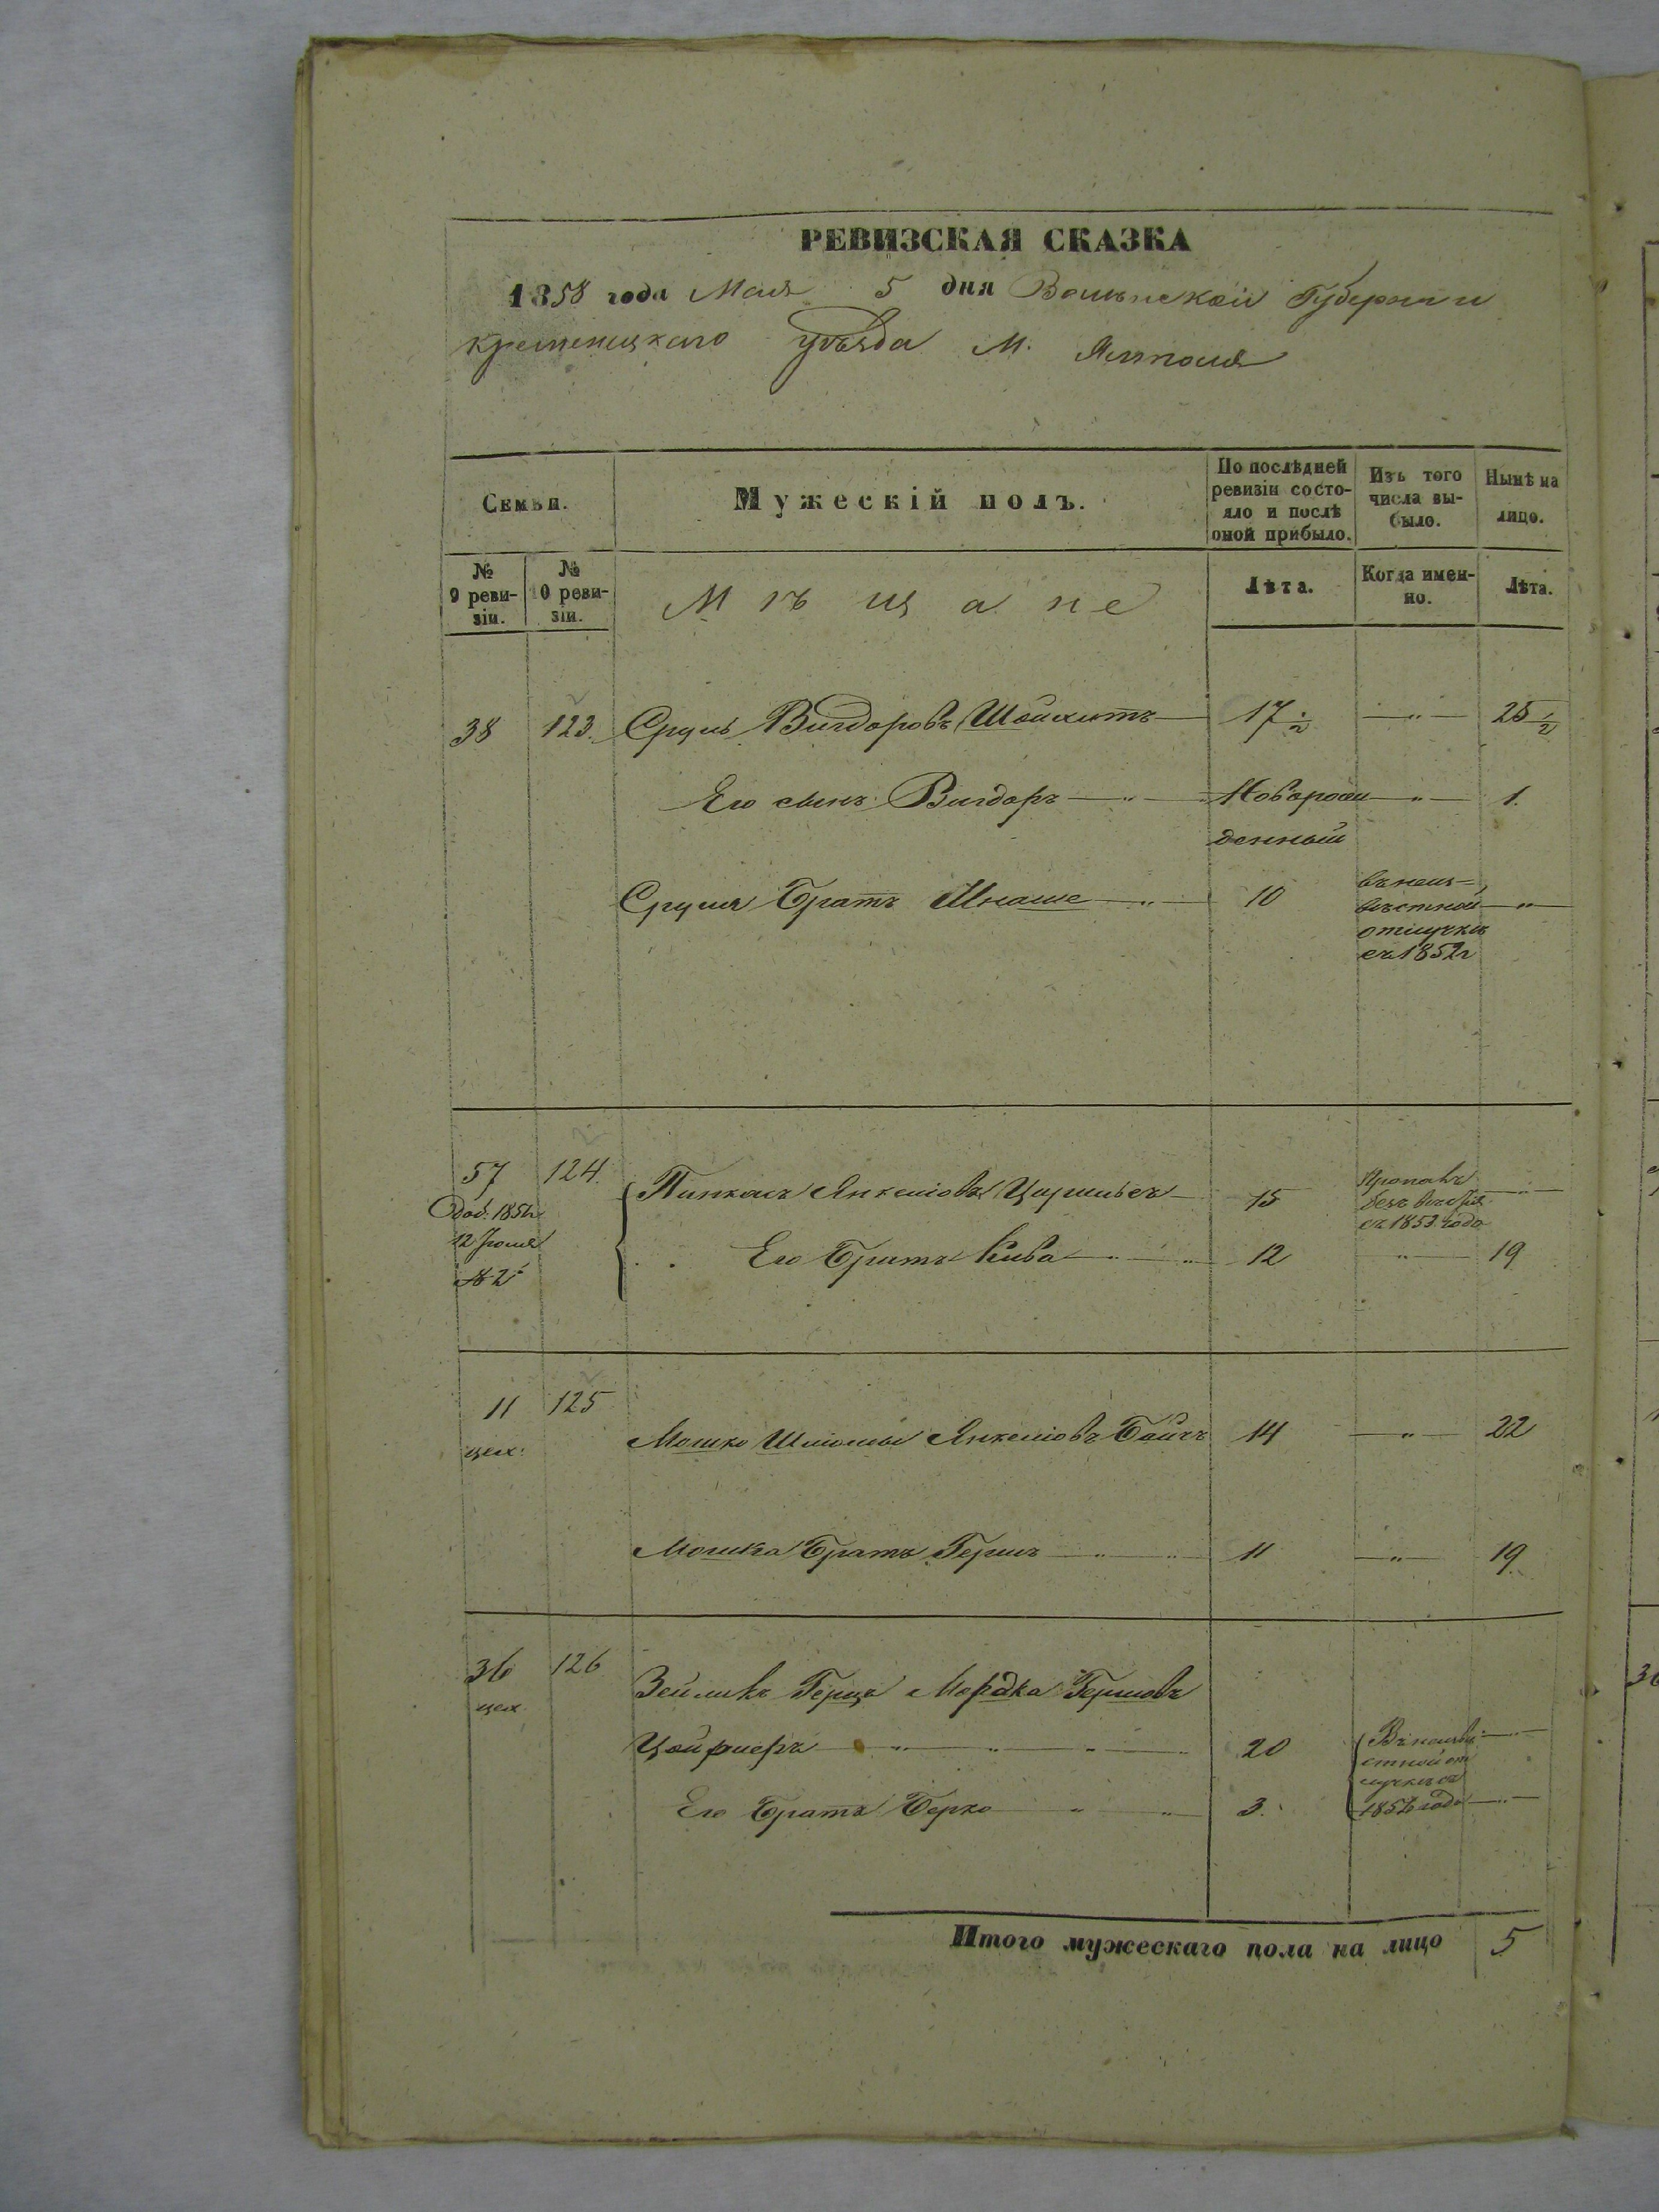 РЕВИЗСКАЯ СКАЗКА
1858 года Мая 5 дня Волынской Губернии
Кременецкаго уѣзда М. Ямполя
Семьи.
Мужескій полъ.
По послѣдней ревизіи состояло и послѣ оной прибыло.
Изъ того числа выбыло.
Нынѣ на лицо.
№ 9 ревизіи.
№ 10 ревизіи.
Мѣщане
Лѣта.
Когда именно.
Лѣта.
38 123. Сруль Вигдоровъ Шойхитъ 17 1/2 — " — 25 1/2
Его сынъ Вигдоръ — " — Новорож — " — 1.
денный
Сруля Братъ Мнаше — " — 10 въ неиз=
вѣстной — " —
отлучкѣ
съ 1852 г
57 124. Пинкасъ Янкеліовъ 15 Пропалъ — " —
безъ вѣсти
съ 1853 года
12 Іюля
№ 2
Его Братъ Кива — " — 12 — " — 19
11 125
цех:
Мошко Шліома Янкеліовъ 14 — " — 22
Мошка Братъ Гершъ — " — 11 — " — 19.
36 126
цех.
Зейликъ Герцъ Мордка Гершовъ
20 Въ неизвѣ — " —
стной от
лучкѣ съ
года — " —
Его Братъ Берко — " — 3.
Итого мужескаго пола на лицо 5